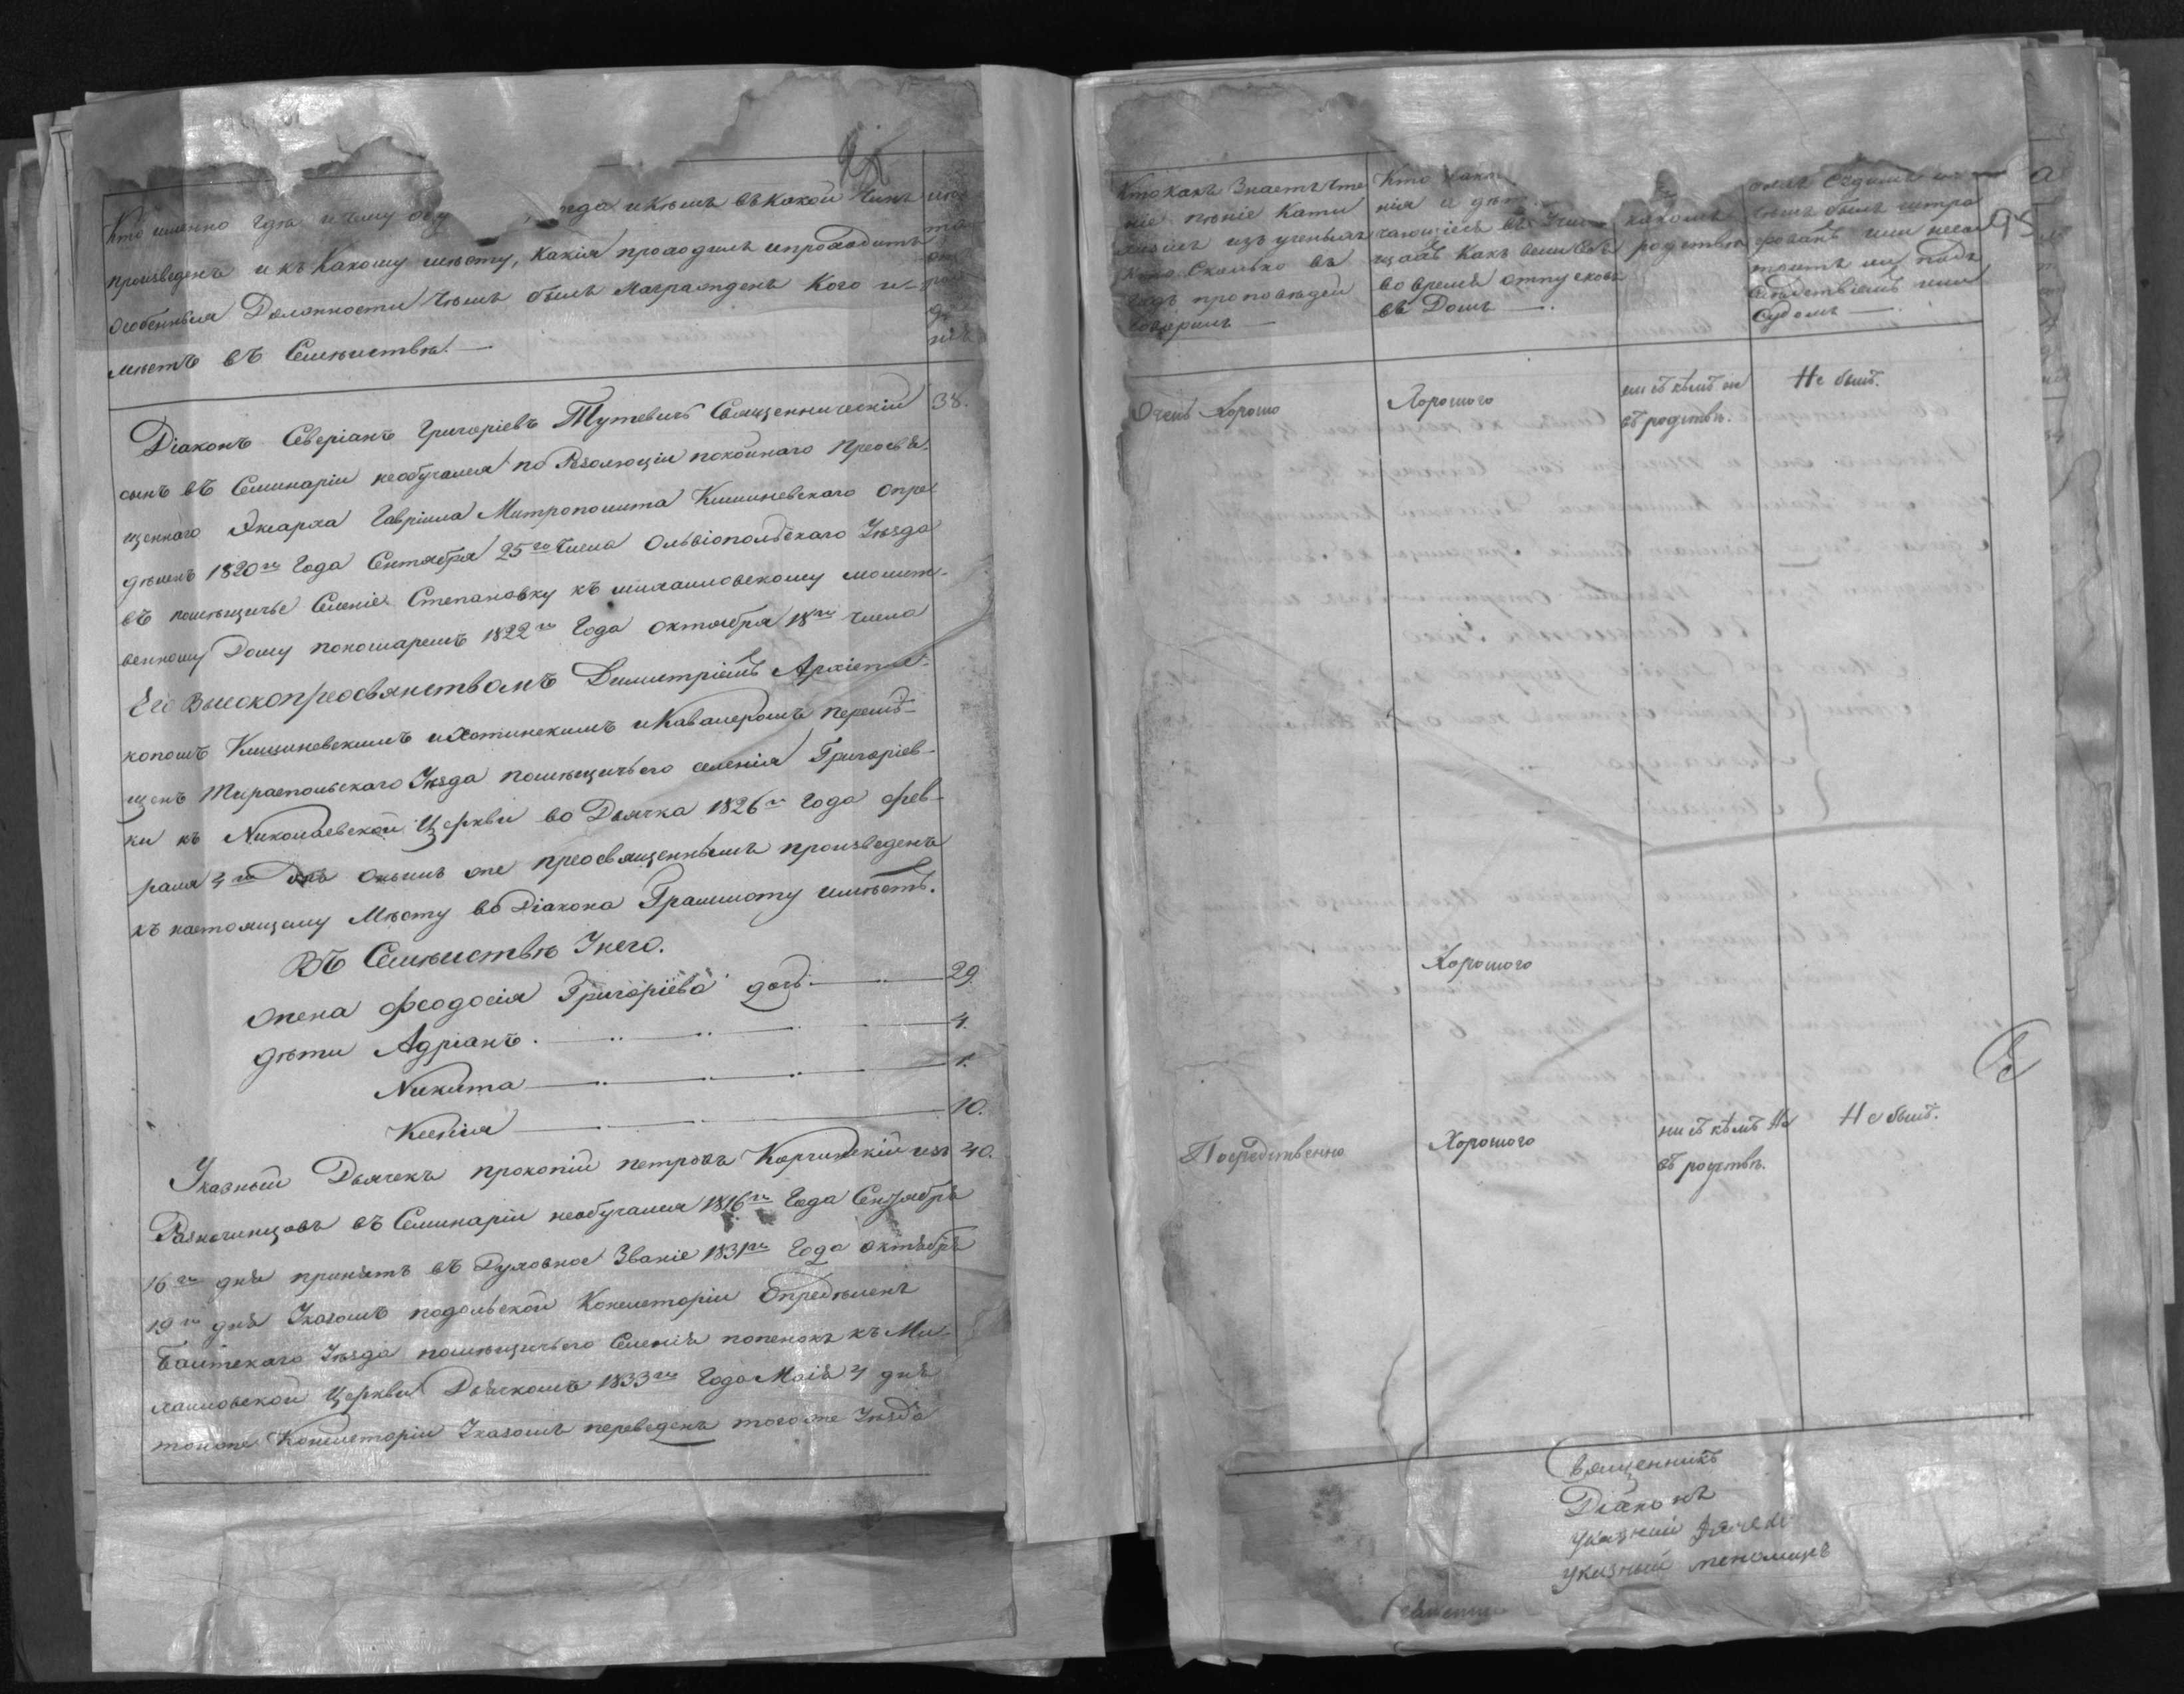 Кто именно гдѣ и чему обу
когда и кѣмъ въ какой Чинъ
произведенъ и къ какому мѣсту, какія проходилъ и проходитъ
особенныя Должности Чѣмъ былъ награжденъ Кого и-
мѣетъ въ Семѣйствѣ. —
Діаконъ Северіанъ Григоріевъ Тутевичъ Священническій 38.
сынъ въ Семинаріи необучался по Резолюціи покойнаго Преосвя-
щеннаго Экзарха Гавріила Митрополита Кишиневскаго опре-
дѣленъ 1820го Года Сентября 25го Числа Ольвіопольскаго Уѣзда
въ помѣщичье Селеніе Степановку къ михаиловскому молит-
венному Дому пономаремъ 1822го Года октоября 18го числа
Его Высокопреосвянствомъ Димитріемъ Архіепис-
копомъ Кишиневскимъ и Хотинскимъ и Кавалеромъ перемѣ-
щенъ Тираспольскаго Уѣзда помѣщичьего селенія Григоріев-
ки къ Николаевской Церкви во Дьячка 1826го Года фев-
раля 4го онымъ же преосвященнымъ произведенъ
къ настоящему Мѣсту во Діакона Граммоту имѣетъ.
Въ Семѣйствѣ Унего.
жена Феодосія Григоріева дочь 29.
дѣти Адріанъ. 4.
Никита 1.
Ксенія 10.
Указный Дьячекъ прокопій петровъ Корчинскій изъ 40.
Разночинцовъ въ Семинаріи необучался 1816го Года Сентября
16го дня принятъ въ Духовное Званіе 1831го Года октября
19го дня Указомъ подольской Консисторіи Опредѣленъ
Балтскаго Уѣзда помѣщичьего Селенія попенокъ къ Ми-
хаиловской Церкви Дьячкомъ 1833го Года Маія 4 дня
тоюже Консисторіи Указомъ переведенъ тогоже Уѣзда
Кто какъ Знаетъ Чте
ніе пѣніе Кати
хизисъ изъ ученыхъ
Сколько въ
Годъ проповѣдей
Говорилъ —
Кто какъ
нія и дѣт
чающіеся въ Учи
щахъ Какъ вели себѣ
во время отпусковъ
въ Домъ —.
какомъ
родствѣ
былъ штра
фованъ или несо
тоитъ ли подъ
Слѣдствіемъ или
Судомъ —.
95
Очень Хорошо
Хорошого
ни съ кѣмъ не
въ родствѣ.
Не былъ.
Хорошого
Посредственно
Хорошого
ни съ кѣмъ Не
въ родствѣ.
Не былъ.
Священникъ
Діаконъ
указный дячекъ
указный пономаръ